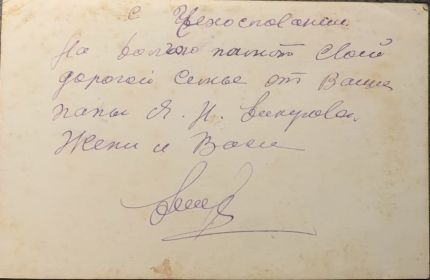 с Чехословакии
На долгую память своей
дорогой семье от Ваше
папы Я. И.
Жени и Васи